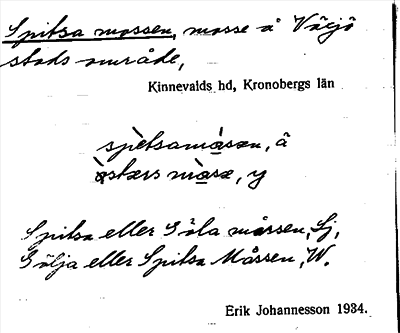 Spitsa mossen, mosse å Växjö
stads område,
Kinnevalds hd, Kronobergs län
spètsamåsæn, å
östærs måsæ, y
Spitsa eller Göla måssen, Lj,
Gölja eller Spitsa Måssen, W.
Erik Johannesson 1934.